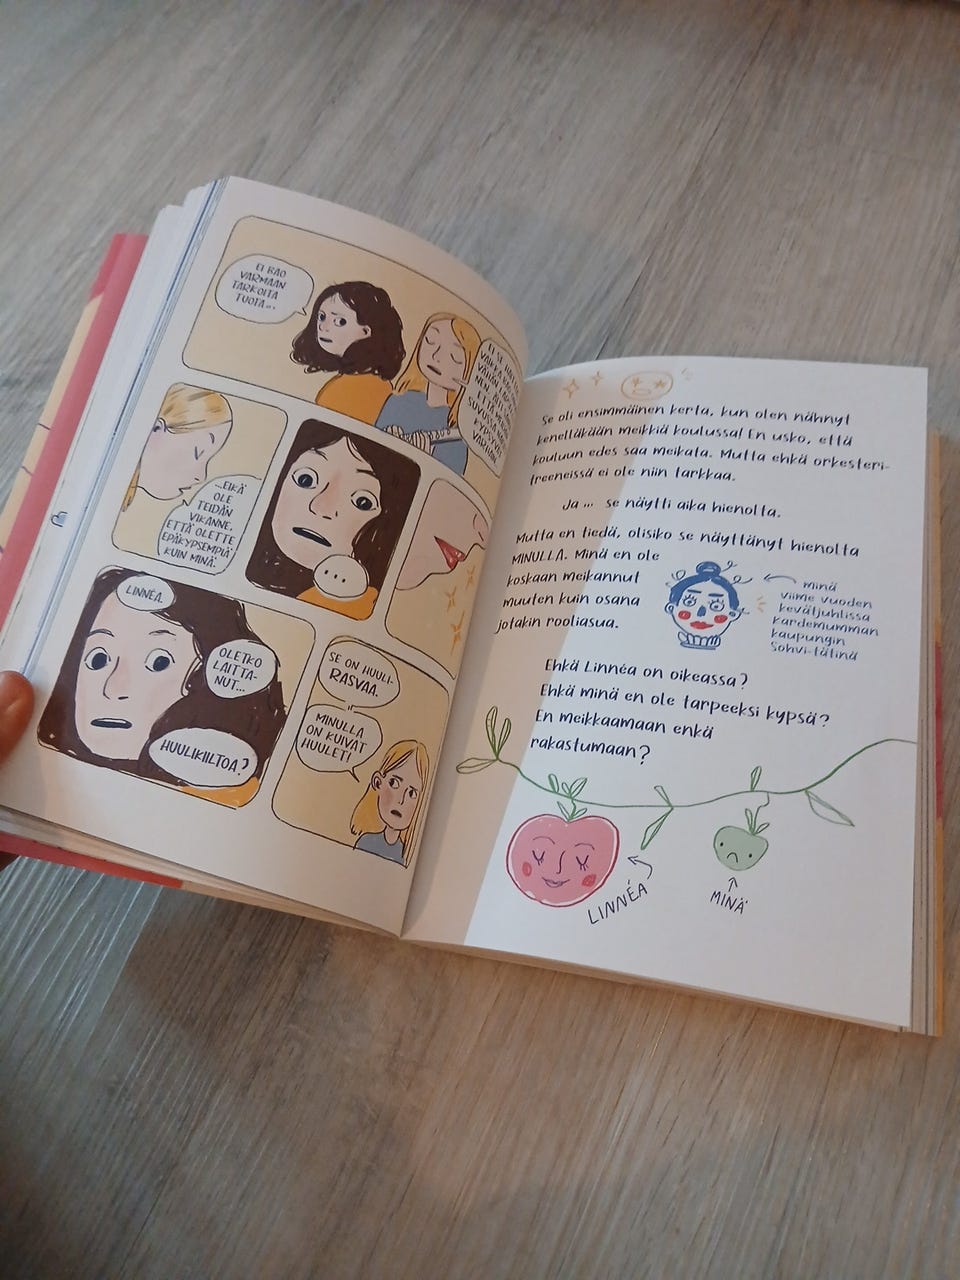 EI BAO
VARMAAN
TARKOITA
TUOTA...
EI SE HAITTAA
...EIKÄ
OLE
TEIDÄN
VIKANNE,
ETTÄ OLETTE
EPÄKYPSEMPIÄ
KUIN MINÄ.
...
LINNÉA.
OLETKO
LAITTA-
NUT...
HUULIKIILTOA?
SE ON HUULI-
RASVAA.
MINULLA
ON KUIVAT
HUULET!
Se oli ensimmäinen kerta, kun olen nähnyt
kenelläkään meikkiä koulussa! En usko, että
kouluun edes saa meikata. Mutta ehkä orkesteri-
treeneissä ei ole niin tarkkaa.
Ja ... se näytti aika hienolta.
Mutta en tiedä, olisiko se näyttänyt hienolta
MINULLA. Minä en ole
koskaan meikannut
muuten kuin osana
jotakin rooliasua.
minä
viime vuoden
kevätjuhlissa
Kardemumman
kaupungin
Sohvi-tätinä
Ehkä Linnéa on oikeassa?
Ehkä minä en ole tarpeeksi kypsä?
En meikkaamaan enkä
rakastumaan?
LINNÉA
MINÄ